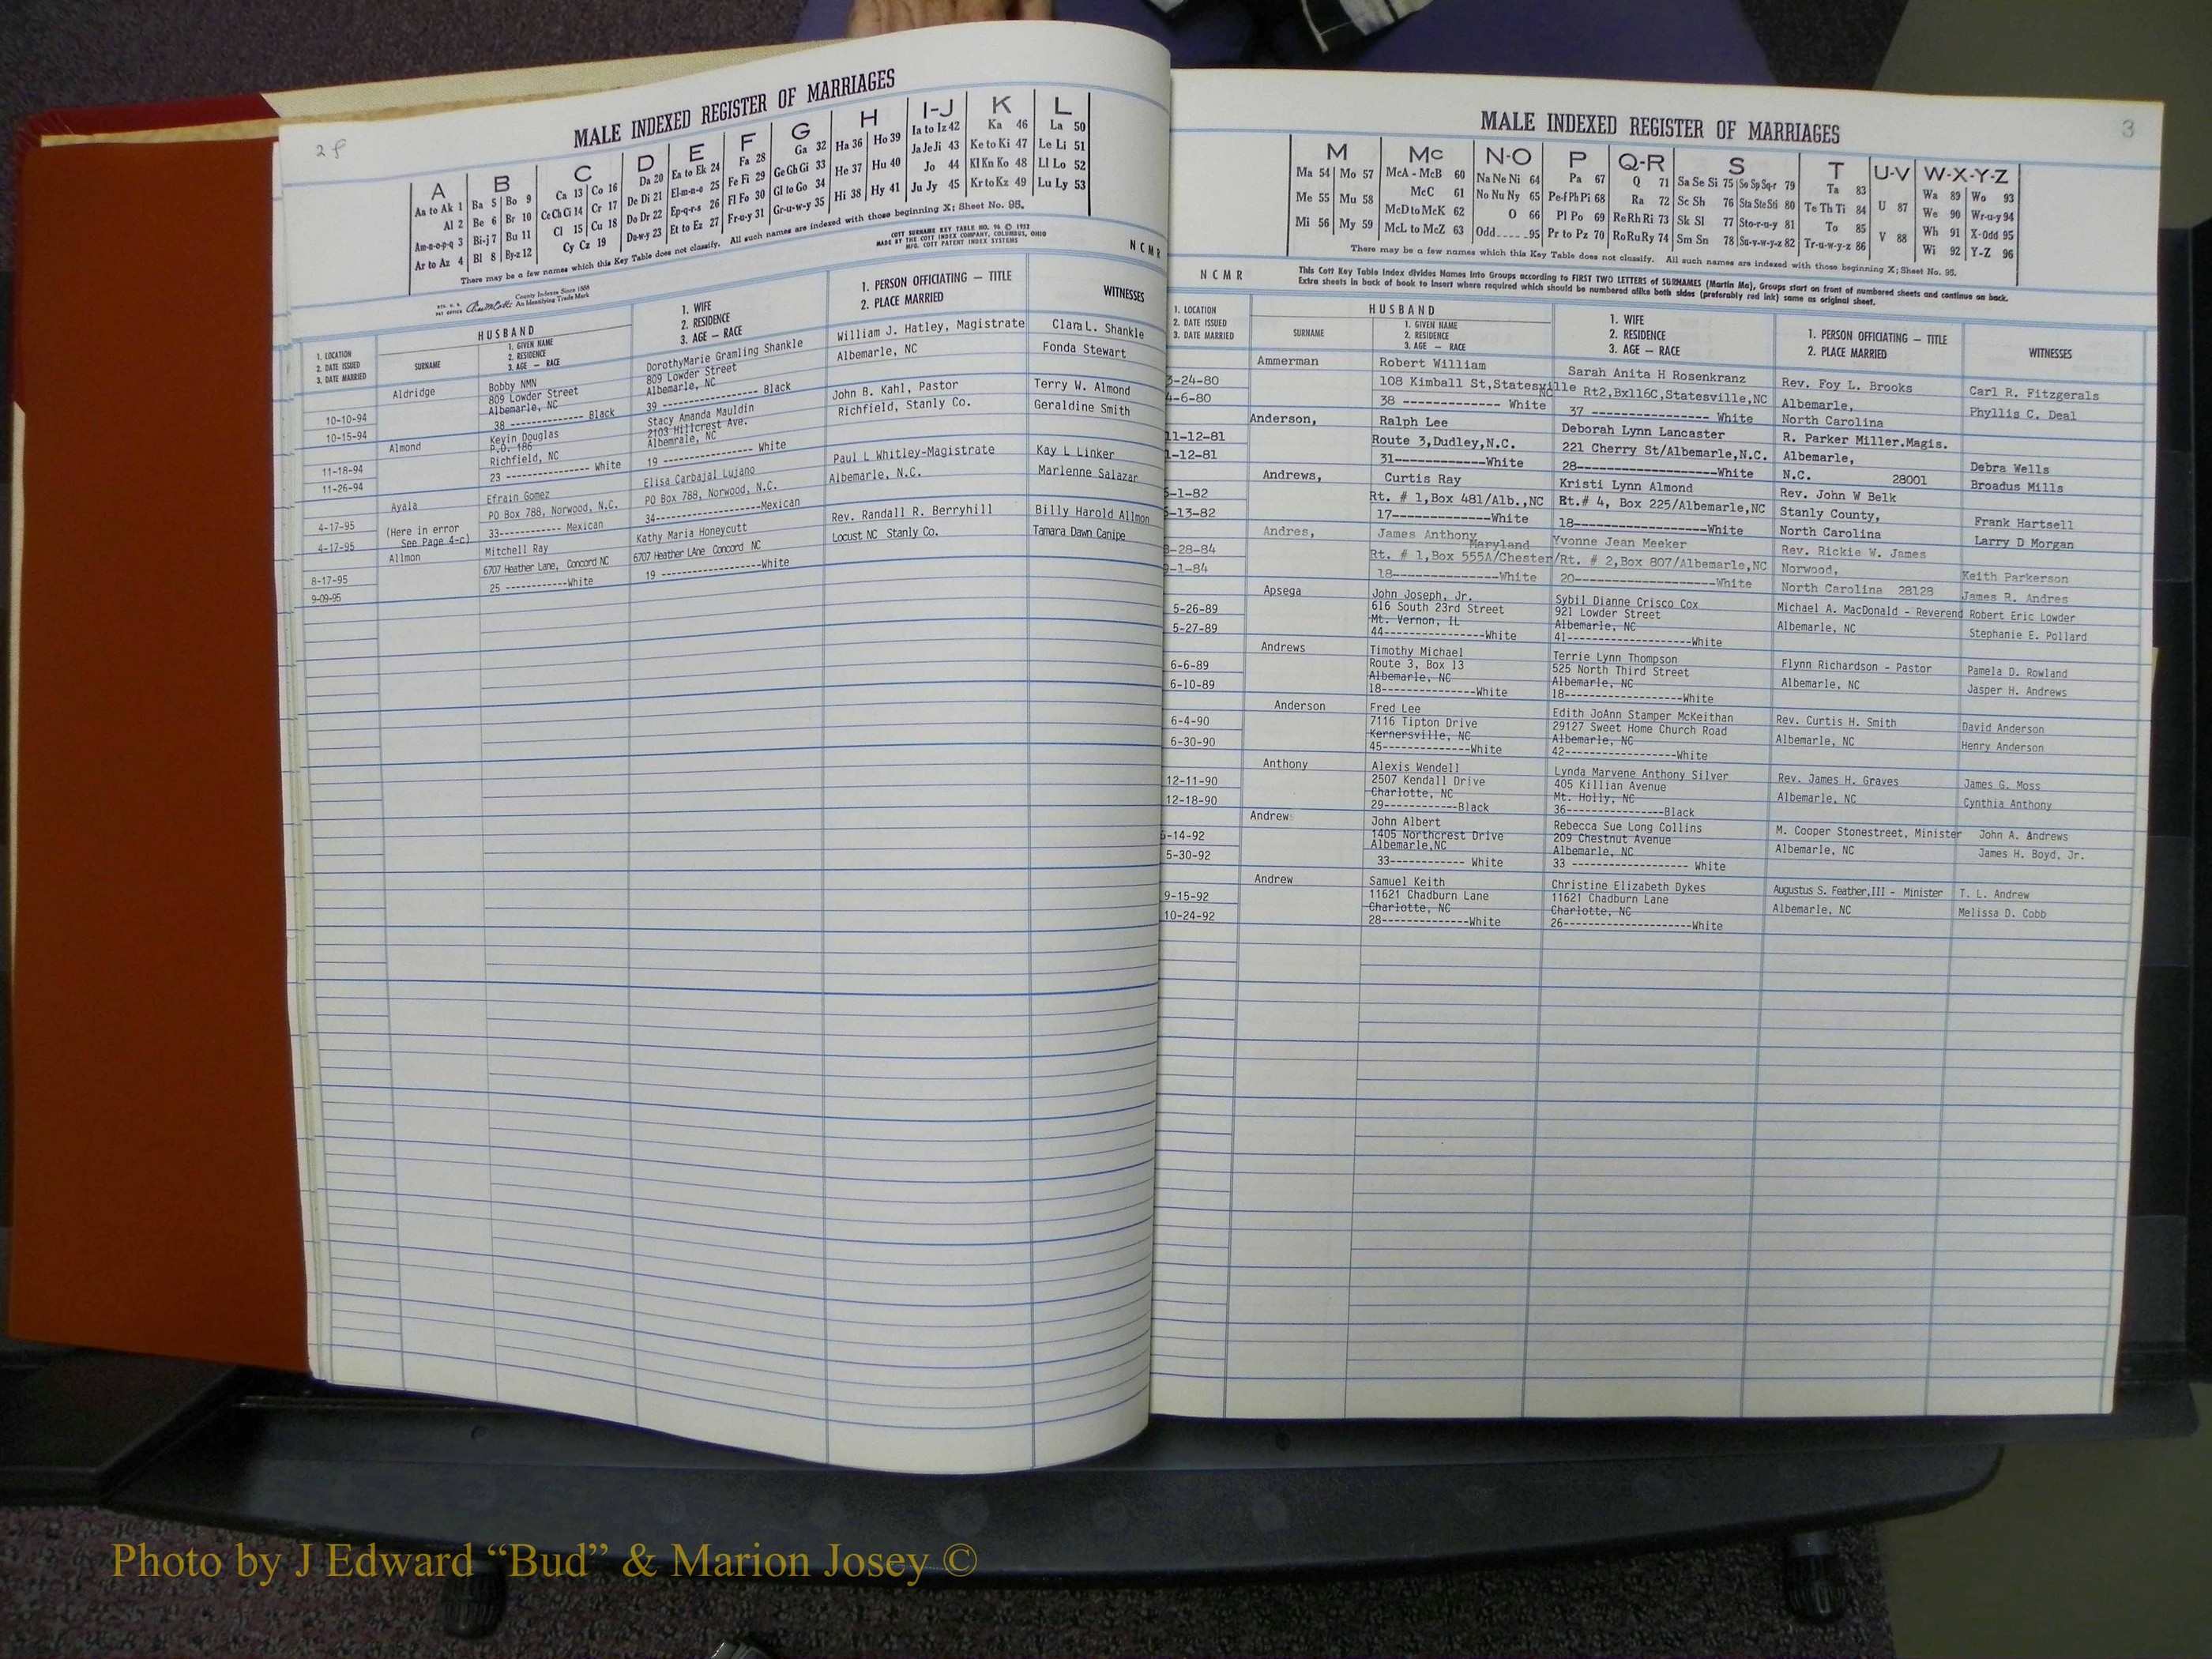 2f
MALE INDEXED REGISTER OF MARRIAGES
A B C D E F G H I-J K L
Aa to Ak 1 Ba 5 Bo 9 Ca 13 Co 16 Da 20 Ea to Ek 24 Fa 28 Ga 32 Ha 36 Ho 39 Ia to Iz 42 Ka 46 La 50
Al 2 Be 6 Br 10 Ce Ch Ci 14 Cr 17 De Di 21 El-m-n-o 25 Fe Fi 29 Ge Gh Gi 33 He 37 Hu 40 Ja Je Ji 43 Ke to Ki 47 Le Li 51
Am-n-o-p-q 3 Bi-j 7 Bu 11 Cl 15 Cu 18 Do Dr 22 Ep-q-r-s 26 Fl Fo 30 Gl to Go 34 Hi 38 Hy 41 Jo 44 Kl Kn Ko 48 Ll Lo 52
Ar to Az 4 Bl 8 By-z 12 Cy Cz 19 Du-w-y 23 Et to Ez 27 Fr-u-y 31 Gr-u-w-y 35 Ju Jy 45 Kr to Kz 49 Lu Ly 53
There may be a few names which this Key Table does not classify. All such names are indexed with those beginning X; Sheet No. 95.
County Indexes Since 1888
An Identifying Trade Mark
COTT SURNAME KEY TABLE NO. 96 © 1952
MADE BY THE COTT INDEX COMPANY, COLUMBUS, OHIO
MFG. COTT PATENT INDEX SYSTEMS
N C M R
1. LOCATION
2. DATE ISSUED
3. DATE MARRIED
HUSBAND
SURNAME
1. GIVEN NAME
2. RESIDENCE
3. AGE — RACE
1. WIFE
2. RESIDENCE
3. AGE — RACE
1. PERSON OFFICIATING — TITLE
2. PLACE MARRIED
WITNESSES
Aldridge
10-10-94
10-15-94
Bobby NMN
809 Lowder Street
Albemarle, NC
38 ------------ Black
DorothyMarie Gramling Shankle
809 Lowder Street
Albemarle, NC
39 ------------------ Black
William J. Hatley, Magistrate
Albemarle, NC
Clara L. Shankle
Fonda Stewart
Almond
11-18-94
11-26-94
Kevin Douglas
P.O. 186
Richfield, NC
23 -------------- White
Stacy Amanda Mauldin
2103 Hillcrest Ave.
Albemrale, NC
19 ------------------ White
John B. Kahl, Pastor
Richfield, Stanly Co.
Terry W. Almond
Geraldine Smith
Ayala
4-17-95
4-17-95
(Here in error
See Page 4-c)
Efrain Gomez
PO Box 788, Norwood, N.C.
33----------- Mexican
Elisa Carbajal Lujano
PO Box 788, Norwood, N.C.
34------------------Mexican
Paul L Whitley-Magistrate
Albemarle, N.C.
Kay L Linker
Marlenne Salazar
Allmon
8-17-95
9-09-95
Mitchell Ray
6707 Heather Lane, Concord NC
25 -----------White
Kathy Maria Honeycutt
6707 Heather LAne Concord NC
19 ------------------White
Rev. Randall R. Berryhill
Locust NC Stanly Co.
Billy Harold Allmon
Tamara Dawn Canipe
3
MALE INDEXED REGISTER OF MARRIAGES
M Mc N-O P Q-R S T U-V W-X-Y-Z
Ma 54 Mo 57 McA - McB 60 Na Ne Ni 64 Pa 67 Q 71 Sa Se Si 75 So Sp Sq-r 79 Ta 83 U 87 Wa 89 Wo 93
Me 55 Mu 58 McC 61 No Nu Ny 65 Pe-f Ph Pi 68 Ra 72 Sc Sh 76 Sta Ste Sti 80 Te Th Ti 84 V 88 We 90 Wr-u-y 94
Mi 56 My 59 McD to McK 62 O 66 Pl Po 69 Re Rh Ri 73 Sk Sl 77 Sto-r-u-y 81 To 85 Wh 91 X-Odd 95
McL to McZ 63 Odd.....95 Pr to Pz 70 Ro Ru Ry 74 Sm Sn 78 Su-v-w-y-z 82 Tr-u-w-y-z 86 Wi 92 Y-Z 96
There may be a few names which this Key Table does not classify. All such names are indexed with those beginning X; Sheet No. 95.
N C M R
This Cott Key Table Index divides Names into Groups according to FIRST TWO LETTERS of SURNAMES (Martin Ma), Groups start on front of numbered sheets and continue on back.
Extra sheets in back of book to insert where required which should be numbered alike both sides (preferably red ink) same as original sheet.
1. LOCATION
2. DATE ISSUED
3. DATE MARRIED
HUSBAND
SURNAME
1. GIVEN NAME
2. RESIDENCE
3. AGE — RACE
1. WIFE
2. RESIDENCE
3. AGE — RACE
1. PERSON OFFICIATING — TITLE
2. PLACE MARRIED
WITNESSES
Ammerman
3-24-80
4-6-80
Robert William
108 Kimball St,Statesville NC
38 ------------- White
Sarah Anita H Rosenkranz
Rt2,Bx116C,Statesville,NC
37 ---------------- White
Rev. Foy L. Brooks
Albemarle,
North Carolina
Carl R. Fitzgerals
Phyllis C. Deal
Anderson,
11-12-81
1-12-81
Ralph Lee
Route 3,Dudley,N.C.
31------------White
Deborah Lynn Lancaster
221 Cherry St/Albemarle,N.C.
28------------------White
R. Parker Miller.Magis.
Albemarle,
N.C. 28001
Debra Wells
Broadus Mills
Andrews,
5-1-82
5-13-82
Curtis Ray
Rt. # 1,Box 481/Alb.,NC
17-------------White
Kristi Lynn Almond
Rt.# 4, Box 225/Albemarle,NC
18------------------White
Rev. John W Belk
Stanly County,
North Carolina
Frank Hartsell
Larry D Morgan
Andres,
8-28-84
9-1-84
James Anthony
Maryland
Rt. # 1,Box 555A/Chester/
18--------------White
Yvonne Jean Meeker
Rt. # 2,Box 807/Albemarle,NC
20-------------------White
Rev. Rickie W. James
Norwood,
North Carolina 28128
Keith Parkerson
James R. Andres
Apsega
5-26-89
5-27-89
John Joseph, Jr.
616 South 23rd Street
Mt. Vernon, IL
44----------------White
Sybil Dianne Crisco Cox
921 Lowder Street
Albemarle, NC
41--------------------White
Michael A. MacDonald - Reverend
Albemarle, NC
Robert Eric Lowder
Stephanie E. Pollard
Andrews
6-6-89
6-10-89
Timothy Michael
Route 3, Box 13
Albemarle, NC
18---------------White
Terrie Lynn Thompson
525 North Third Street
Albemarle, NC
18-------------------White
Flynn Richardson - Pastor
Albemarle, NC
Pamela D. Rowland
Jasper H. Andrews
Anderson
6-4-90
6-30-90
Fred Lee
7116 Tipton Drive
Kernersville, NC
45--------------White
Edith JoAnn Stamper McKeithan
29127 Sweet Home Church Road
Albemarle, NC
42------------------White
Rev. Curtis H. Smith
Albemarle, NC
David Anderson
Henry Anderson
Anthony
12-11-90
12-18-90
Alexis Wendell
2507 Kendall Drive
Charlotte, NC
29------------Black
Lynda Marvene Anthony Silver
405 Killian Avenue
Mt. Holly, NC
36----------------Black
Rev. James H. Graves
Albemarle, NC
James G. Moss
Cynthia Anthony
Andrews
5-14-92
5-30-92
John Albert
1405 Northcrest Drive
Albemarle,NC
33------------ White
Rebecca Sue Long Collins
209 Chestnut Avenue
Albemarle, NC
33 ------------------- White
M. Cooper Stonestreet, Minister
Albemarle, NC
John A. Andrews
James H. Boyd, Jr.
Andrew
9-15-92
10-24-92
Samuel Keith
11621 Chadburn Lane
Charlotte, NC
28--------------White
Christine Elizabeth Dykes
11621 Chadburn Lane
Charlotte, NC
26---------------------White
Augustus S. Feather,III - Minister
Albemarle, NC
T. L. Andrew
Melissa D. Cobb
Photo by J Edward “Bud” & Marion Josey ©